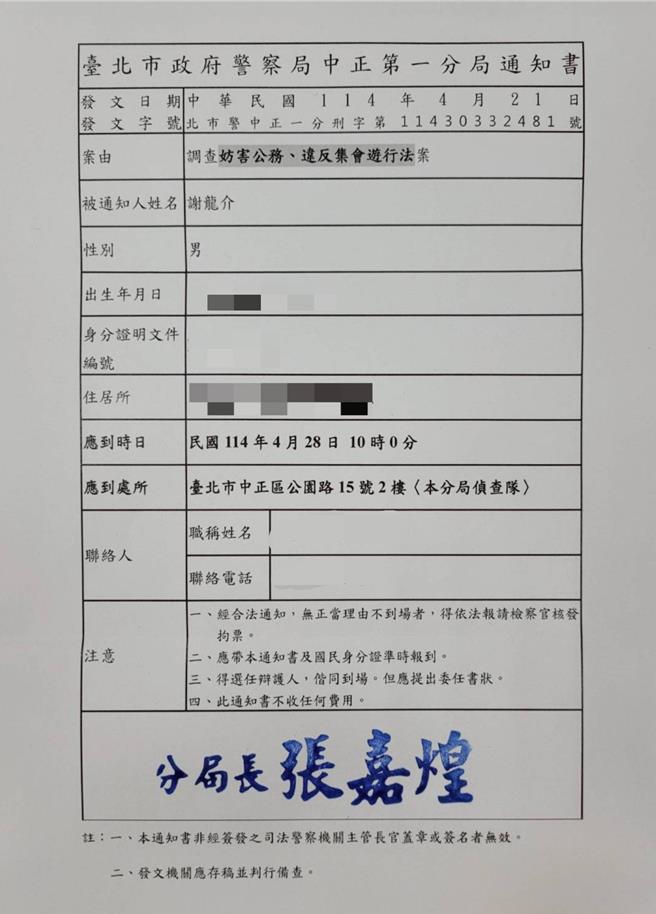 臺北市政府警察局中正第一分局通知書
發文日期 中華民國114年4月21日
發文字號 北市警中正一分刑字第11430332481號
案由 調查妨害公務、違反集會遊行法案
被通知人姓名 謝龍介
性別 男
出生年月日
身分證明文件
編號
住居所
應到時日 民國114年4月28日 10時0分
應到處所 臺北市中正區公園路15號2樓〈本分局偵查隊〉
聯絡人
職稱姓名
聯絡電話
注意
一、經合法通知，無正當理由不到場者，得依法報請檢察官核發
拘票。
二、應帶本通知書及國民身分證準時報到。
三、得選任辯護人，偕同到場。但應提出委任書狀。
四、此通知書不收任何費用。
分局長 張嘉煌
註：一、本通知書非經簽發之司法警察機關主管長官蓋章或簽名者無效。
二、發文機關應存稿並判行備查。